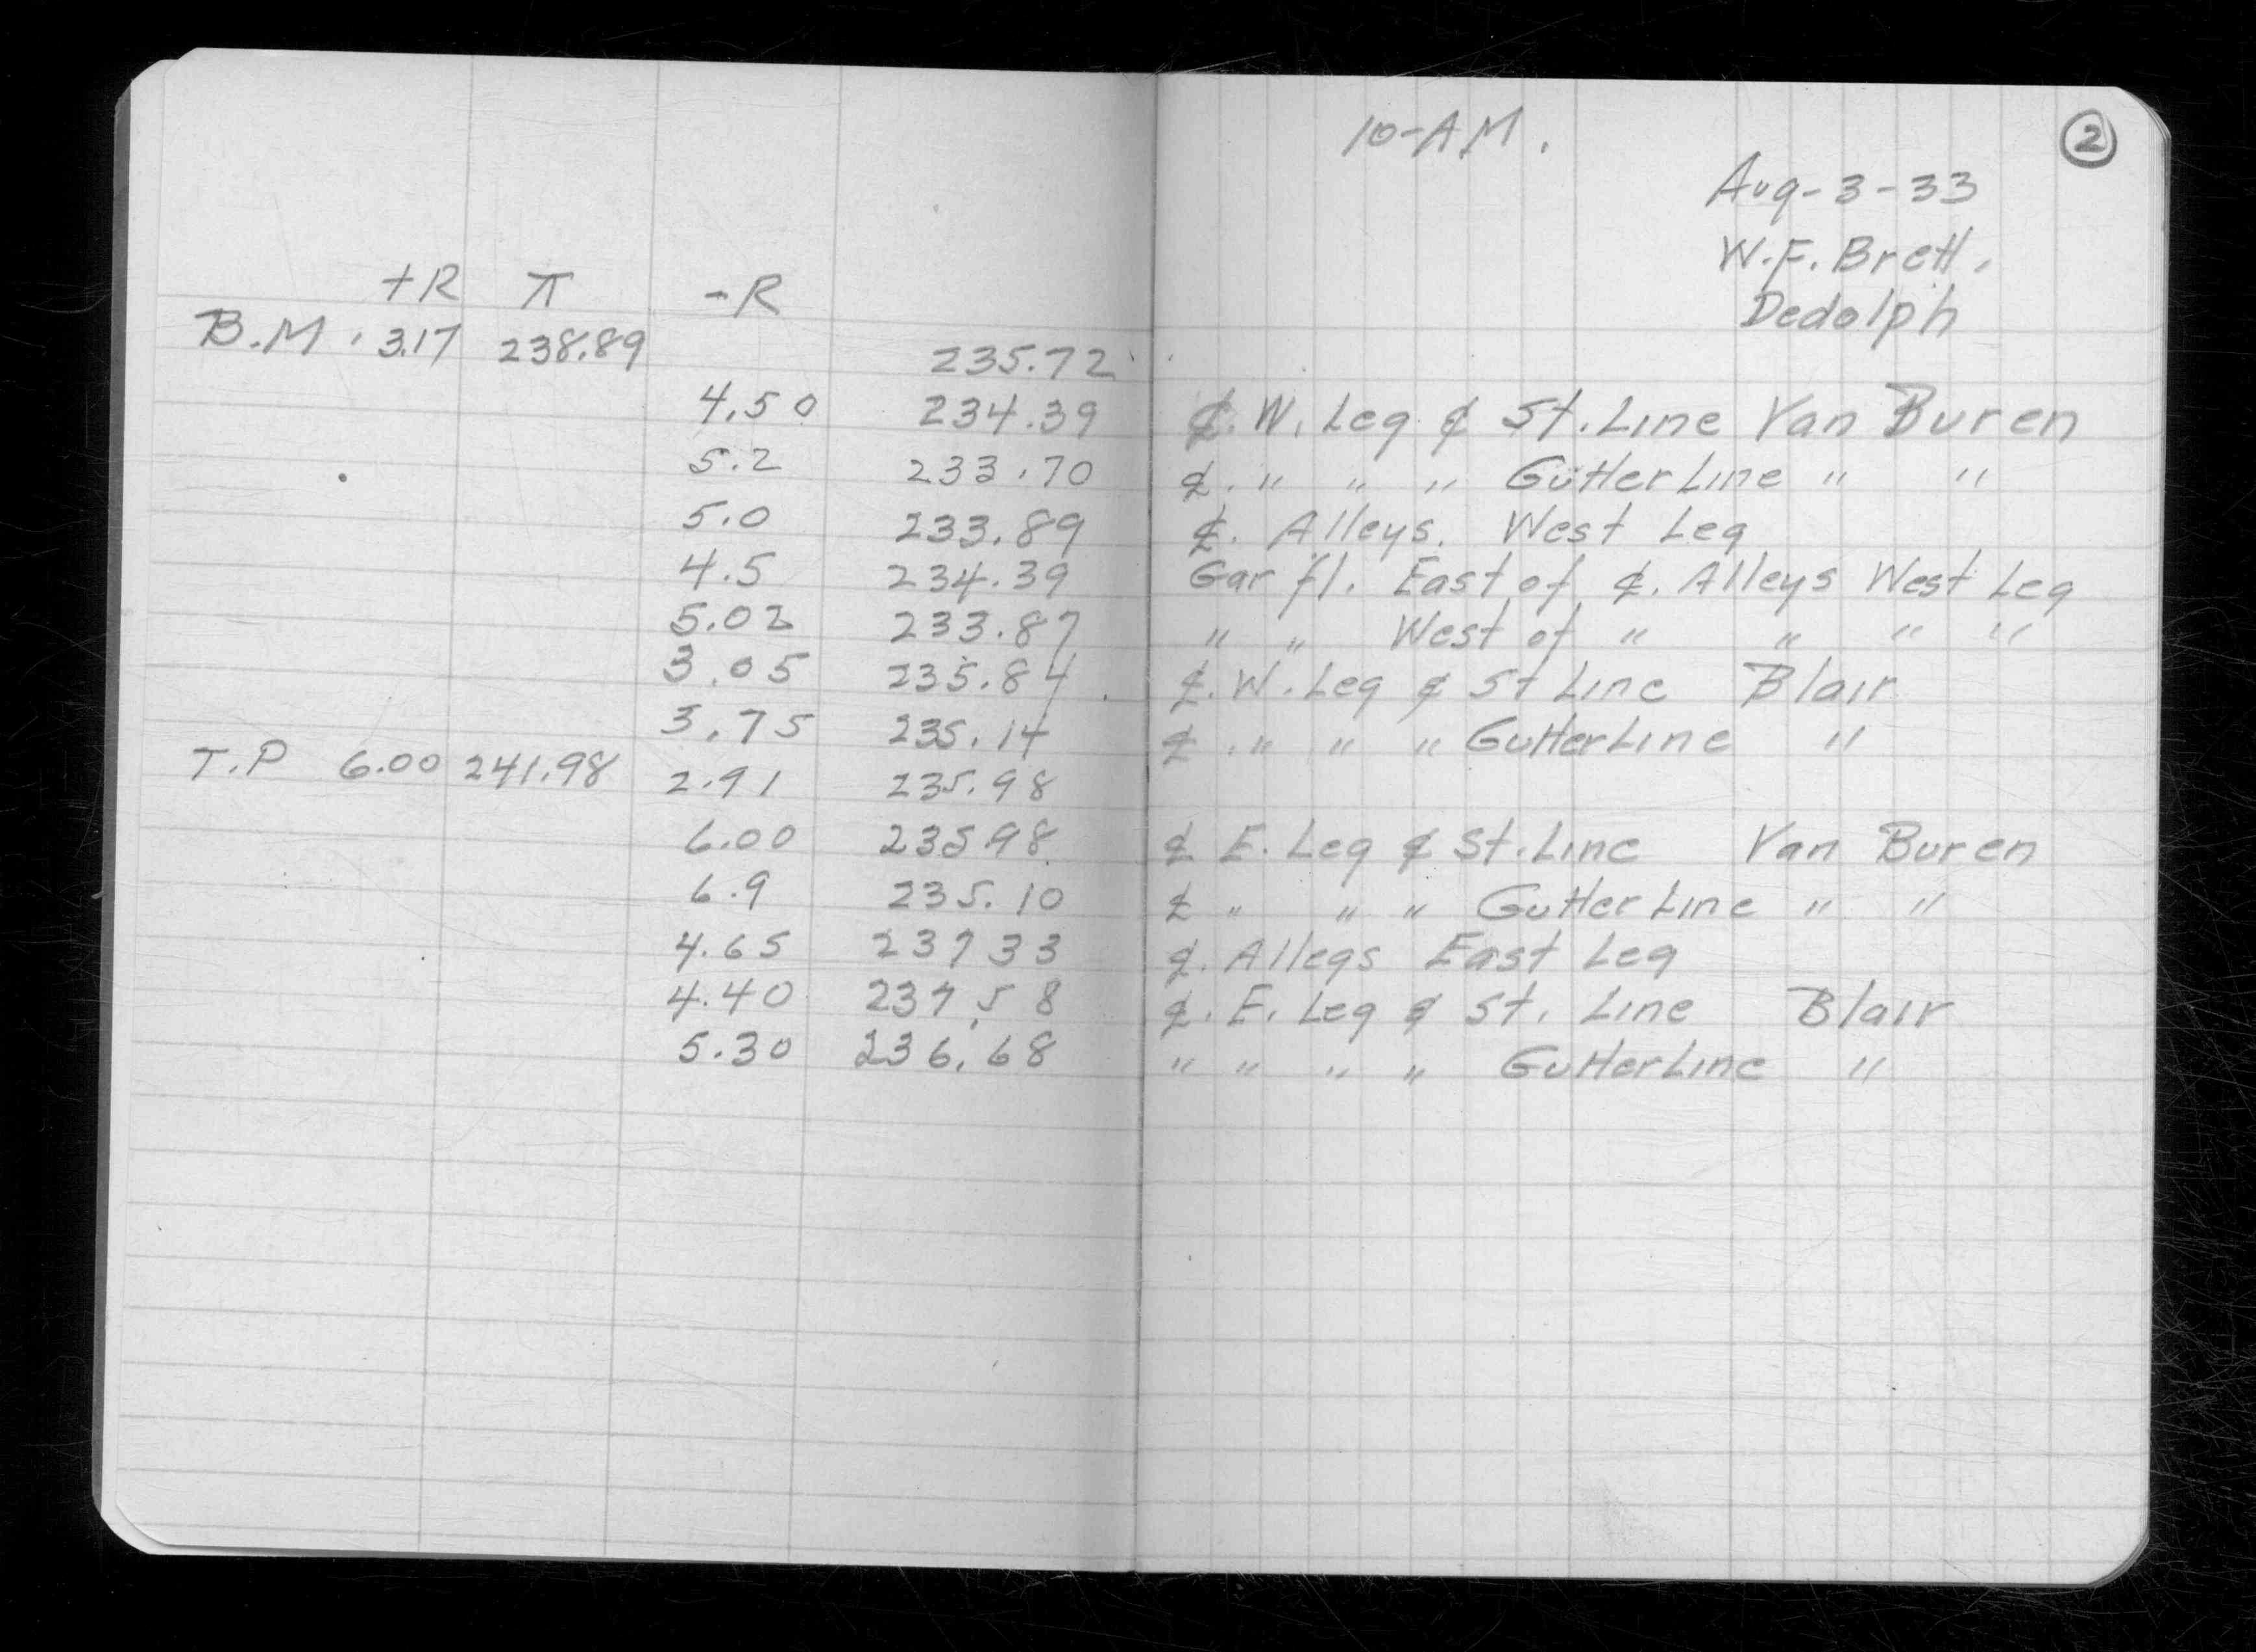 10-AM.
2
Aug-3-33
W.F. Brett.
Dedolph
+R π -R
B.M. 3.17 238.89 235.72
4.50 234.39 ₵. W. Leg ₵ St. Line Van Buren
5.2 233.70 ₵. " " " Gutter Line " "
5.0 233.89 ₵. Alleys. West Leg
4.5 234.39 Gar fl. East of ₵. Alleys West Leg
5.02 233.87 " " West of " " " "
3.05 235.84 ₵. W. Leg ₵ St Line Blair
3.75 235.14 ₵. " " " Gutter Line "
T.P 6.00 241.98 2.91 235.98
6.00 235.98 ₵ E. Leg ₵ St. Line Van Buren
6.9 235.10 ₵ " " " Gutter Line " "
4.65 237 33 ₵. Alleys East Leg
4.40 237.58 ₵. E. Leg ₵ St. Line Blair
5.30 236.68 " " " " Gutter Line "